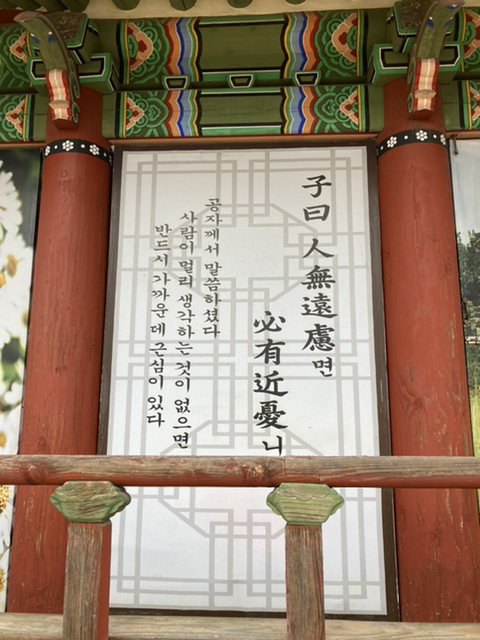 子曰 人無遠慮면
必有近憂니
공자께서 말씀하셨다
사람이 멀리 생각하는 것이 없으면
반드시 가까운 데 근심이 있다